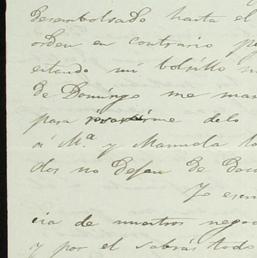 desembolsado hasta el
orden en contrario p
estando mi bolsillo
de Domingo me man
para delo
a Mª y Manuela to
dos no dejen de
Te escri
cia de nuestros nego
y por el sabrás todo